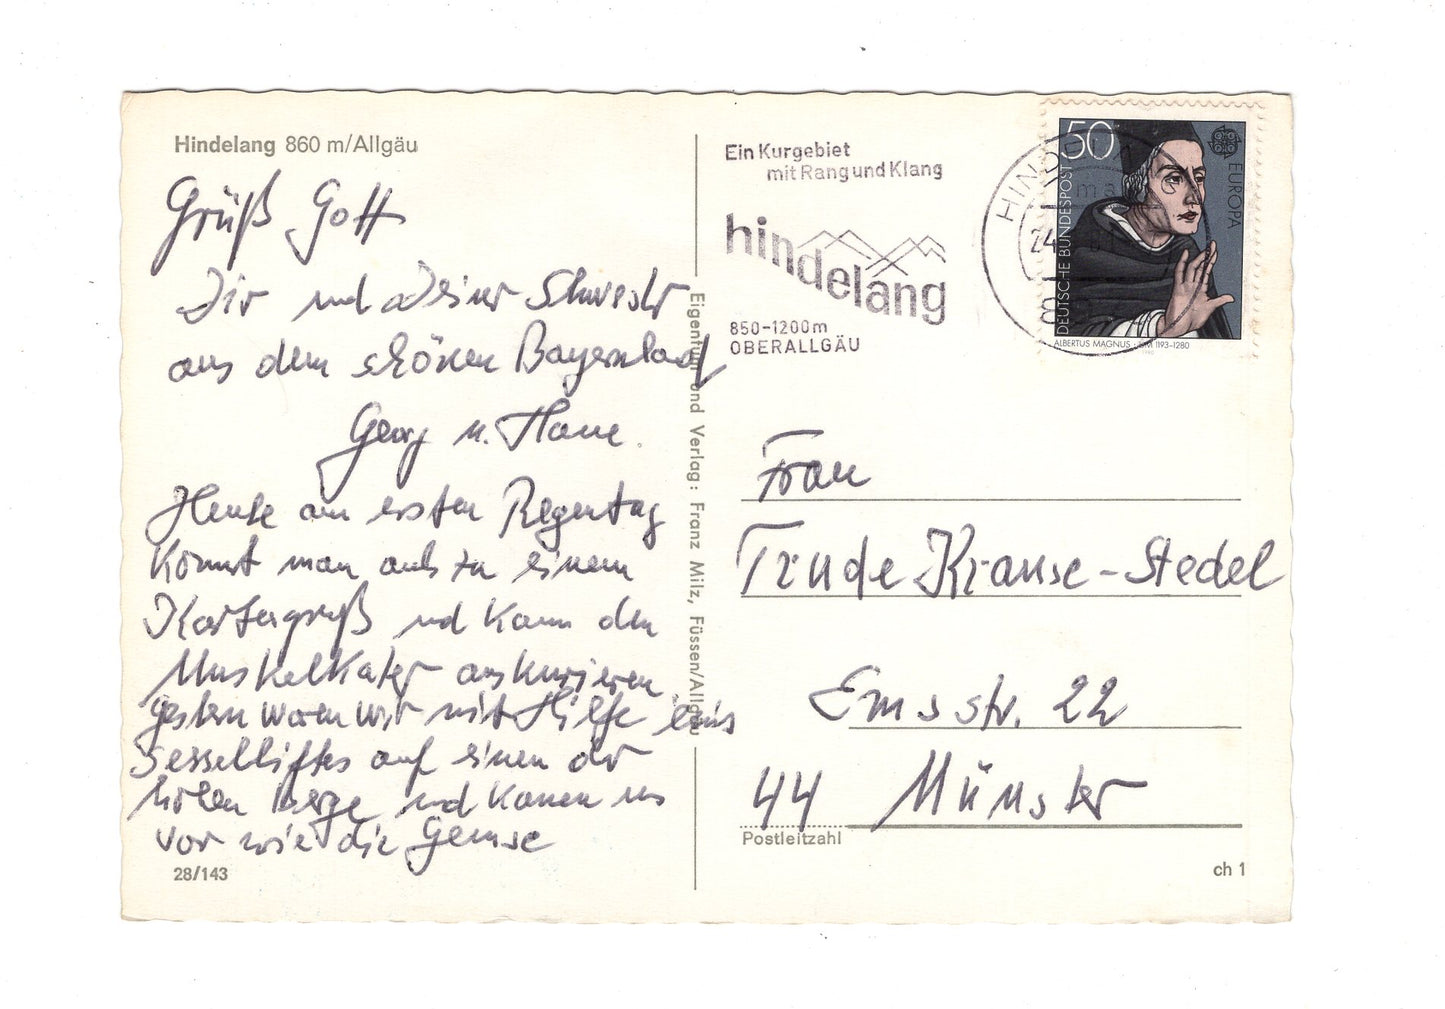 Hindelang 860 m/Allgäu
Grüß Gott
Dir und Deiner Schwester
aus dem schönen Bayernland
Georg u. Hanne.
Heute am ersten Regentag
kommt man auch zu einem
Kartengruß und kann den
Muskelkater auskurieren
gestern waren wir mit Hilfe eines
Sesselliftes auf einen der
hohen Berge und kamen uns
vor wie die Gemse
28/143
Eigentum und Verlag: Franz Milz, Füssen/Allgäu
Ein Kurgebiet
mit Rang und Klang
hindelang
850-1200m
OBERALLGÄU
HINDELANG
24
50
DEUTSCHE BUNDESPOST
EUROPA
ALBERTUS MAGNUS 1193-1280
1980
Frau
Trude Krause-Stedel
Emsstr. 22
44 Münster
Postleitzahl
ch 1